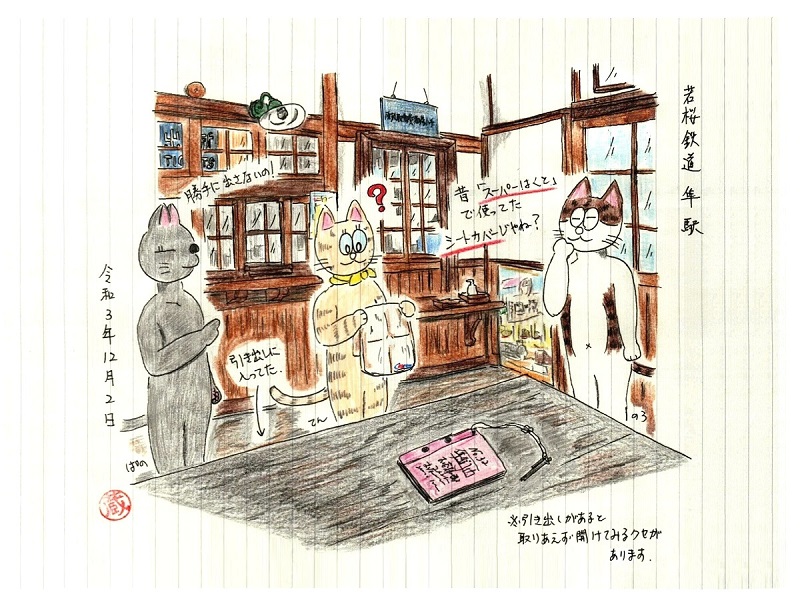 若桜鉄道 隼駅
勝手に出さないの！
？
昔「スーパーはくと」
で使ってた
シートカバーじゃね？
引き出しに
入ってた.
令和3年12月2日
ぱの
てん
のろ
蔵
※引き出しがあると
取りあえず開けてみるクセが
あります.